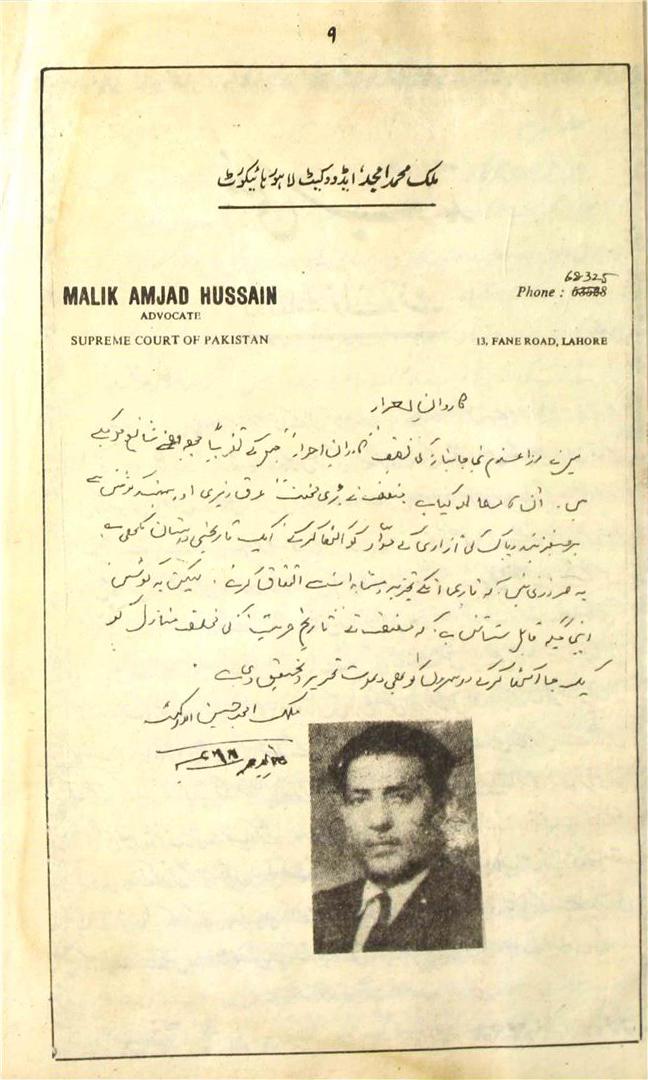 ۹
ملک محمد امجد، ایڈووکیٹ لاہور ہائیکورٹ
MALIK AMJAD HUSSAIN
ADVOCATE
SUPREME COURT OF PAKISTAN
68325
Phone : 63528
13, FANE ROAD, LAHORE
کاروان احرار
میں نے مرزا غلام نبی جانباز کی تصنیف "کاروان احرار" جس کے تقریباً چھ حصے شائع ہو چکے
ہیں۔ ان کا مطالعہ کیا ہے۔ مصنف نے بڑی محنت، عرق ریزی اور
برصغیر ہند و پاک کی آزادی کے مواد کو اکٹھا کر کے ایک تاریخی داستان لکھی ہے
یہ ضروری نہیں کہ قاری انکے تجزیہ و مشاہدات سے اتفاق کرے۔ لیکن یہ کوشش
اپنی جگہ قابل ستائش ہے کہ مصنف نے "تاریخ حریت" کی مختلف منازل کو
یک جا اکٹھا کر کے دوسروں کو بھی دعوت تحریر و تحقیق دی ہے۔
ملک امجد حسین ایڈووکیٹ